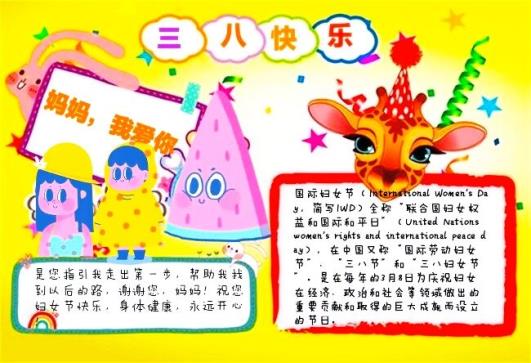 三八快乐
妈妈，我爱你
是您指引我走出第一步，帮助我找
到以后的路，谢谢您，妈妈！祝您
妇女节快乐，身体健康，永远开心
国际妇女节（International Women's Da
y，简写IWD）全称“联合国妇女权
益和国际和平日”（United Nations
women's rights and international peace d
ay），在中国又称“国际劳动妇女
节”、“三八节”和“三八妇女节
”，是在每年的3月8日为庆祝妇女
在经济、政治和社会等领域做出的
重要贡献和取得的巨大成就而设立
的节日。